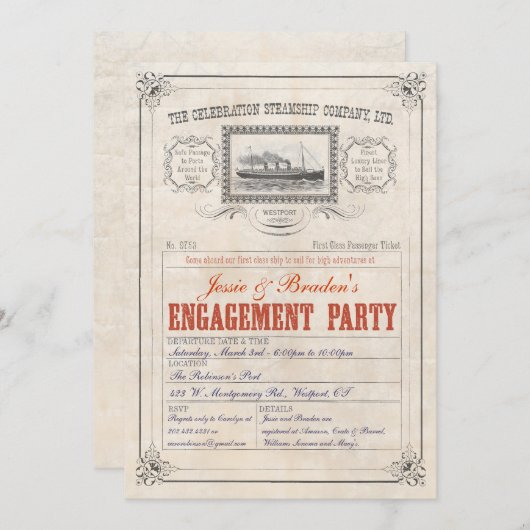 THE CELEBRATION STEAMSHIP COMPANY, LTD.
Safe Passage
to Ports
Around the
World
Finest
Luxury Liner
to Sail the
High Seas
WESTPORT
No. ST53
First Class Passenger Ticket
Come aboard our first class ship to sail for high adventures at
Jessie & Braden's
ENGAGEMENT PARTY
DEPARTURE DATE & TIME
Saturday, March 3rd - 6:00pm to 10:00pm
LOCATION
The Robinson's Port
423 W. Montgomery Rd., Westport, CT
RSVP
Regrets only to Carolyn at
202.432.4331 or
cecerobinson@gmail.com
DETAILS
Jessie and Braden are
registered at Amazon, Crate & Barrel,
Williams Sonoma and Macy's.